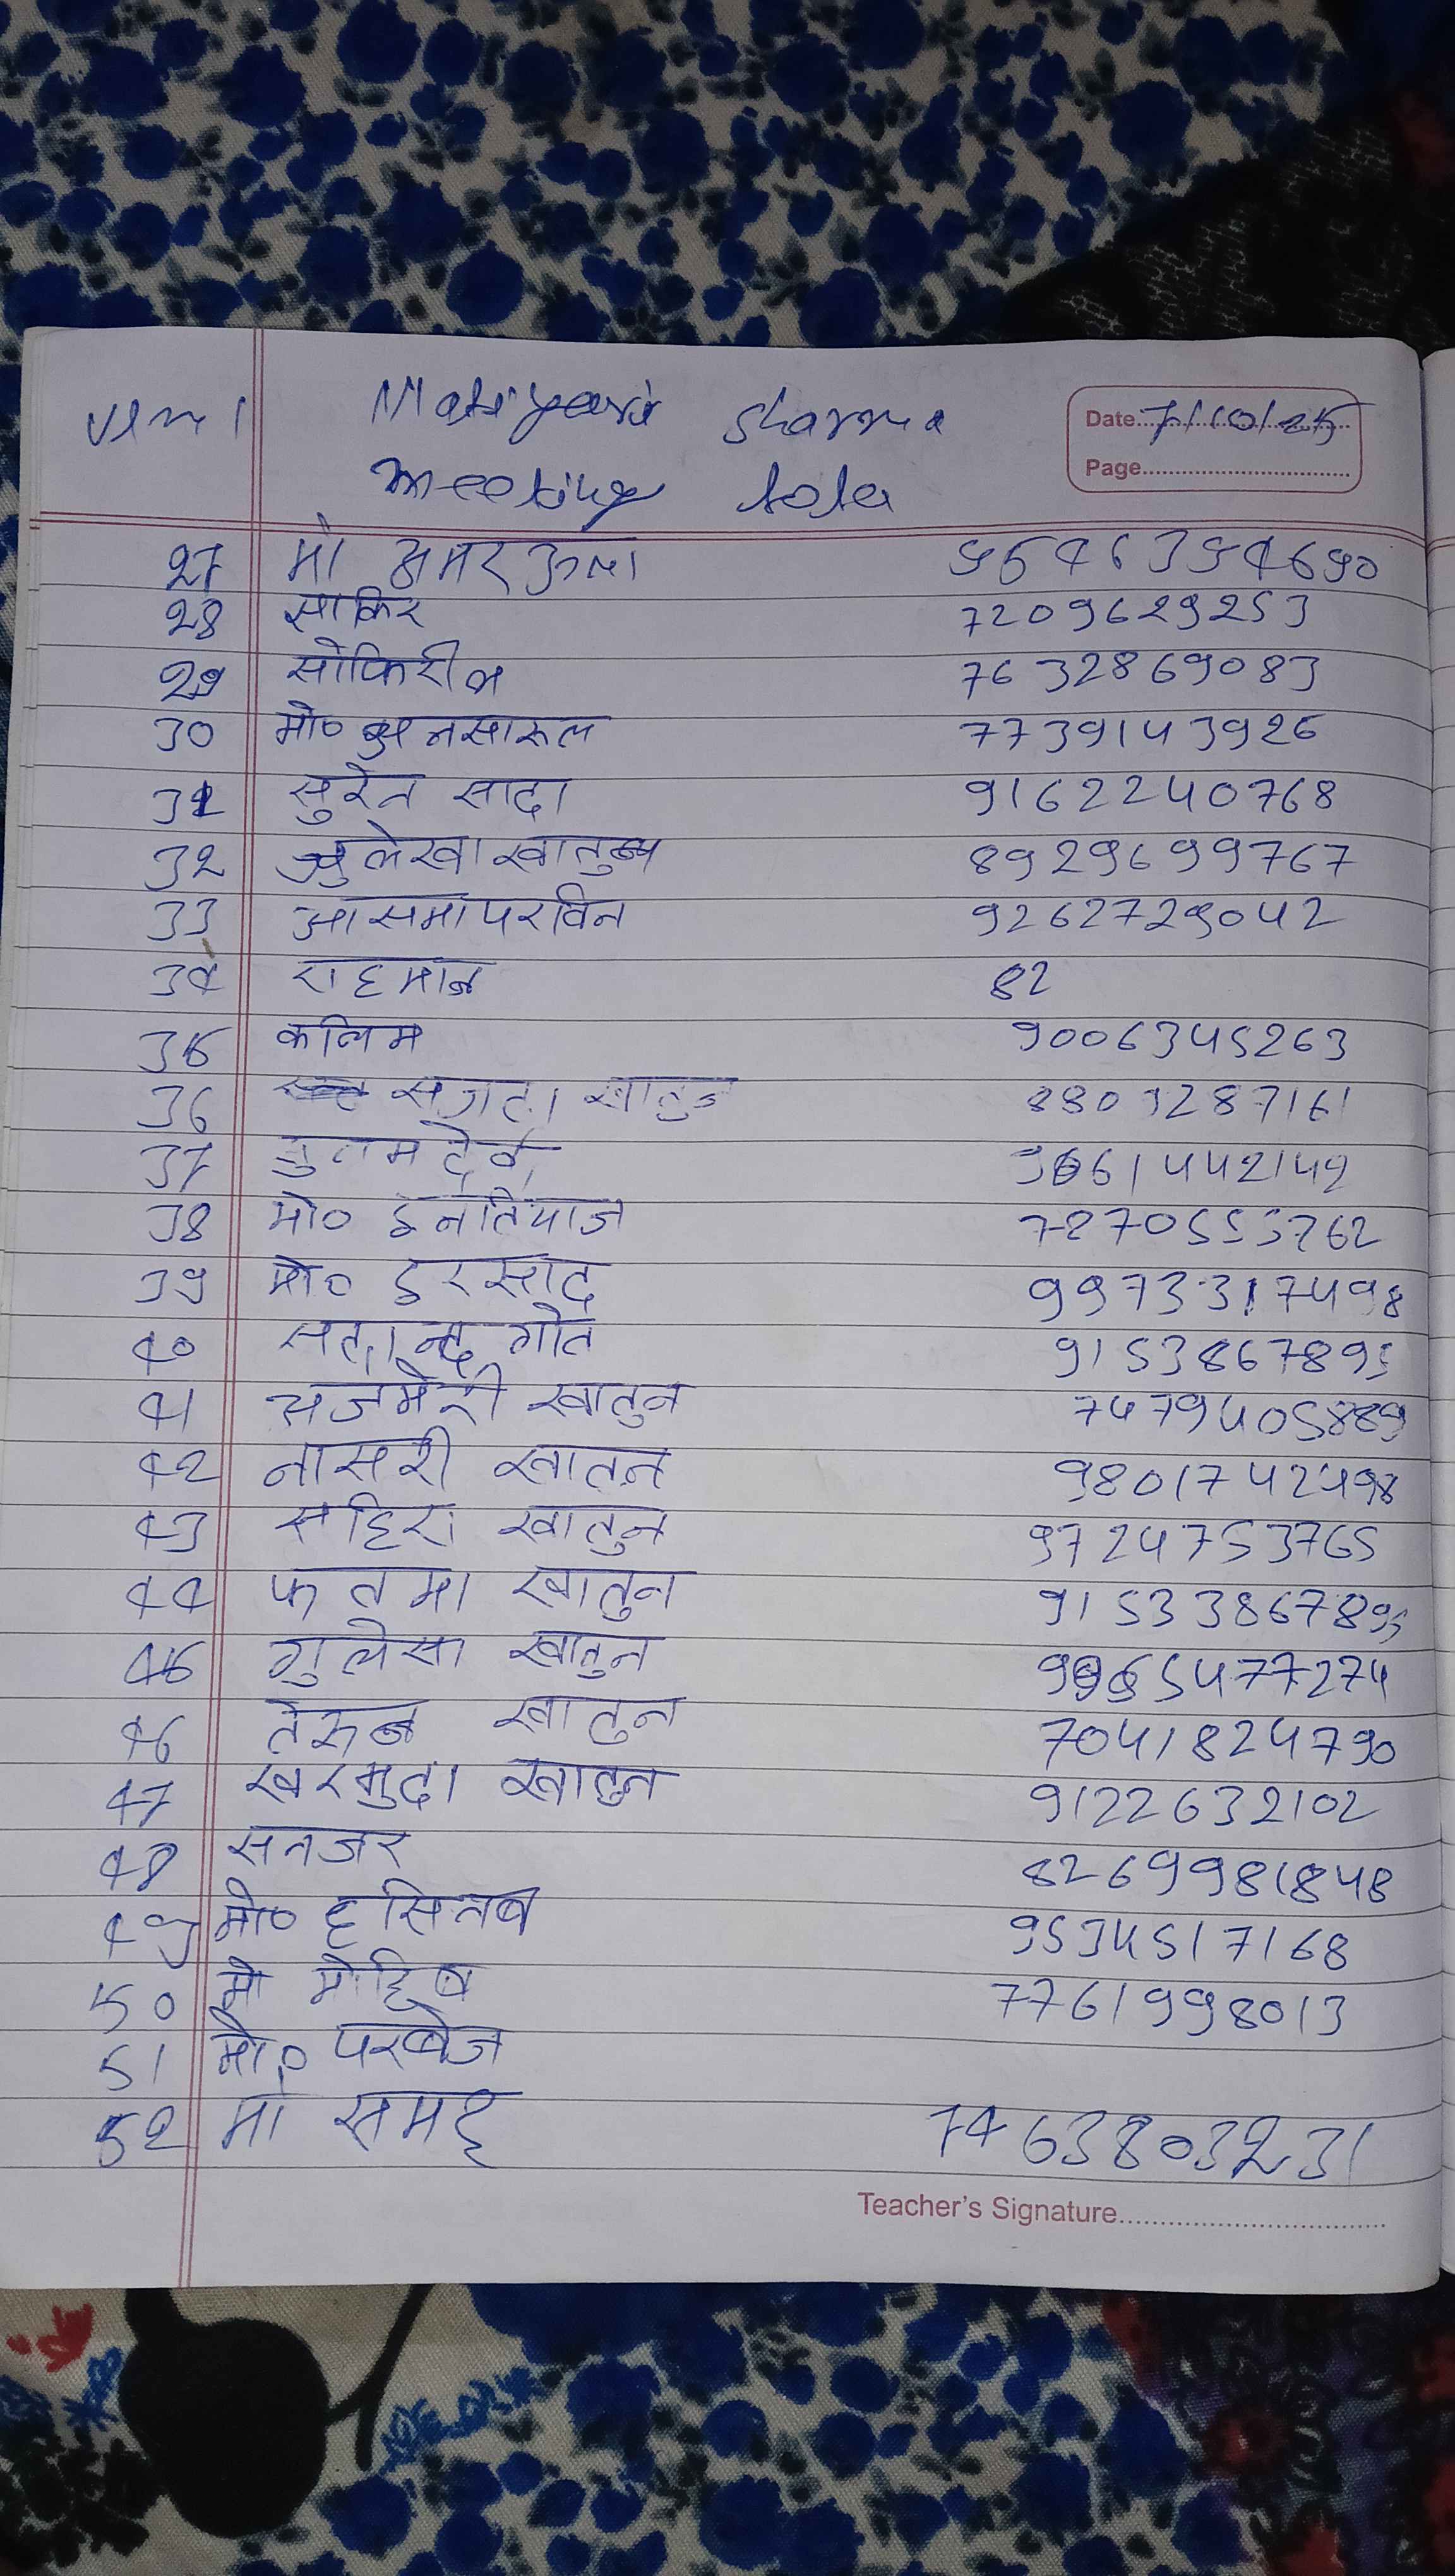 Matiyari sharma
meeting tola
Date 7/10/25
Page
27 मो अमरउला
28 साकिर 7209629253
29 7632869083
30 मो० अनसारूल 7739143926
31 सुरेन सादा 9162240768
32 जुलेखा खातुन 8929699767
33 आसमा परविन 9262729042
34 राहमान 82
35 कलिम 9006345263
36 खातुन
37 देवी
38 मो० इनतियाज
39 मो० इरसाद 9973317498
40 9153867895
41 अजमेरी खातुन
42 नासरी खातन 9801742498
43 सहिरा खातुन 9724753765
44 फतमा खातुन 91533867895
45 गुलेसा खातुन
46 खातुन 7041824790
47 खरमुदा खातुन 9122632102
48 सनजर 8269981848
49 मो० हसितब 9534517168
50 मो मोहिब 7761998013
51 मो० परबेज
52 मो समह 7463803231
Teacher's Signature